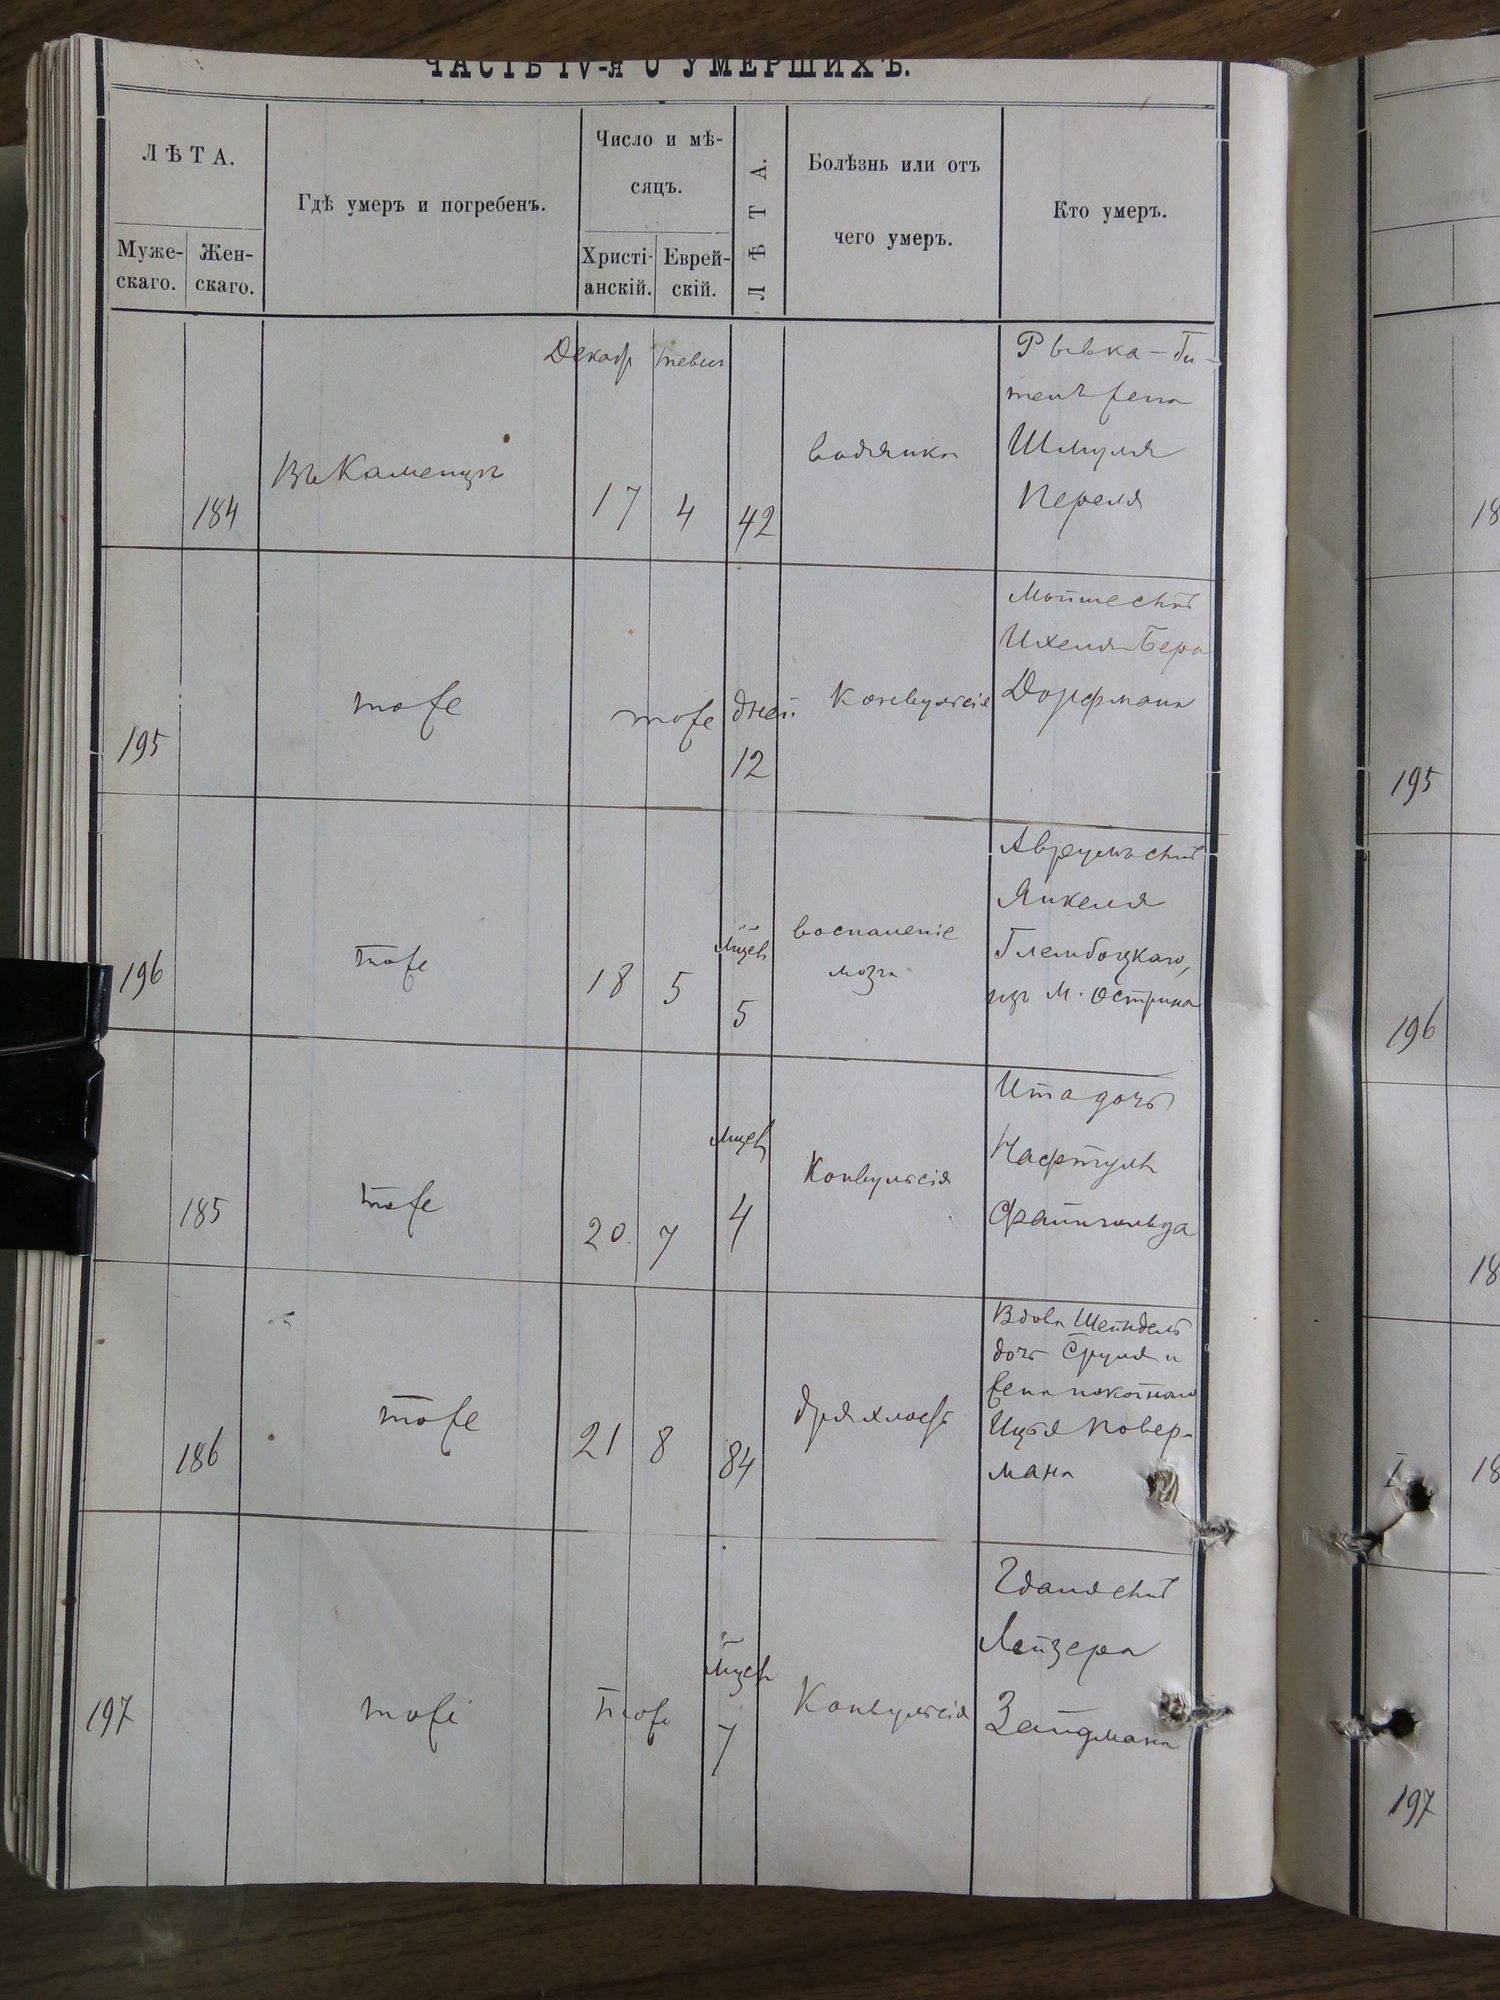 ЧАСТЬ IV-я О УМЕРШИХЪ.
ЛѢТА.
Муже-
скаго.
Жен-
скаго.
Гдѣ умеръ и погребенъ.
Число и мѣ-
сяцъ.
Христі-
анскій.
Еврей-
скій.
ЛѢТА.
Болѣзнь или отъ
чего умеръ.
Кто умеръ.
184
Въ Каменцѣ
Декабр
тевис
17
4
42
водянка
Рывка-Ги-
тель жена
Шмуля
Переля
195
тоже
тоже
дней
12
Конвульсія
Мойше сынъ
Ихеля-Бера
Дорфмана
196
тоже
18
5
мѣсцев
5
воспаленіе
мозга
Авруумъ сынъ
Янкеля
Глембоцкаго,
изъ м. Острина
185
тоже
20
7
мѣсцев
4
Конвульсія
Ита дочь
Нафтуля
Файнгольда
186
тоже
21
8
84
дряхлость
Вдова Шейндель
дочь Сруля и
жена покойнаго
Ицья Ковер-
мана
197
тоже
тоже
мѣсцев
7
Конвульсія
Гдаля сынъ
Лейзера
Зайдмана
18
195
196
18
18
197